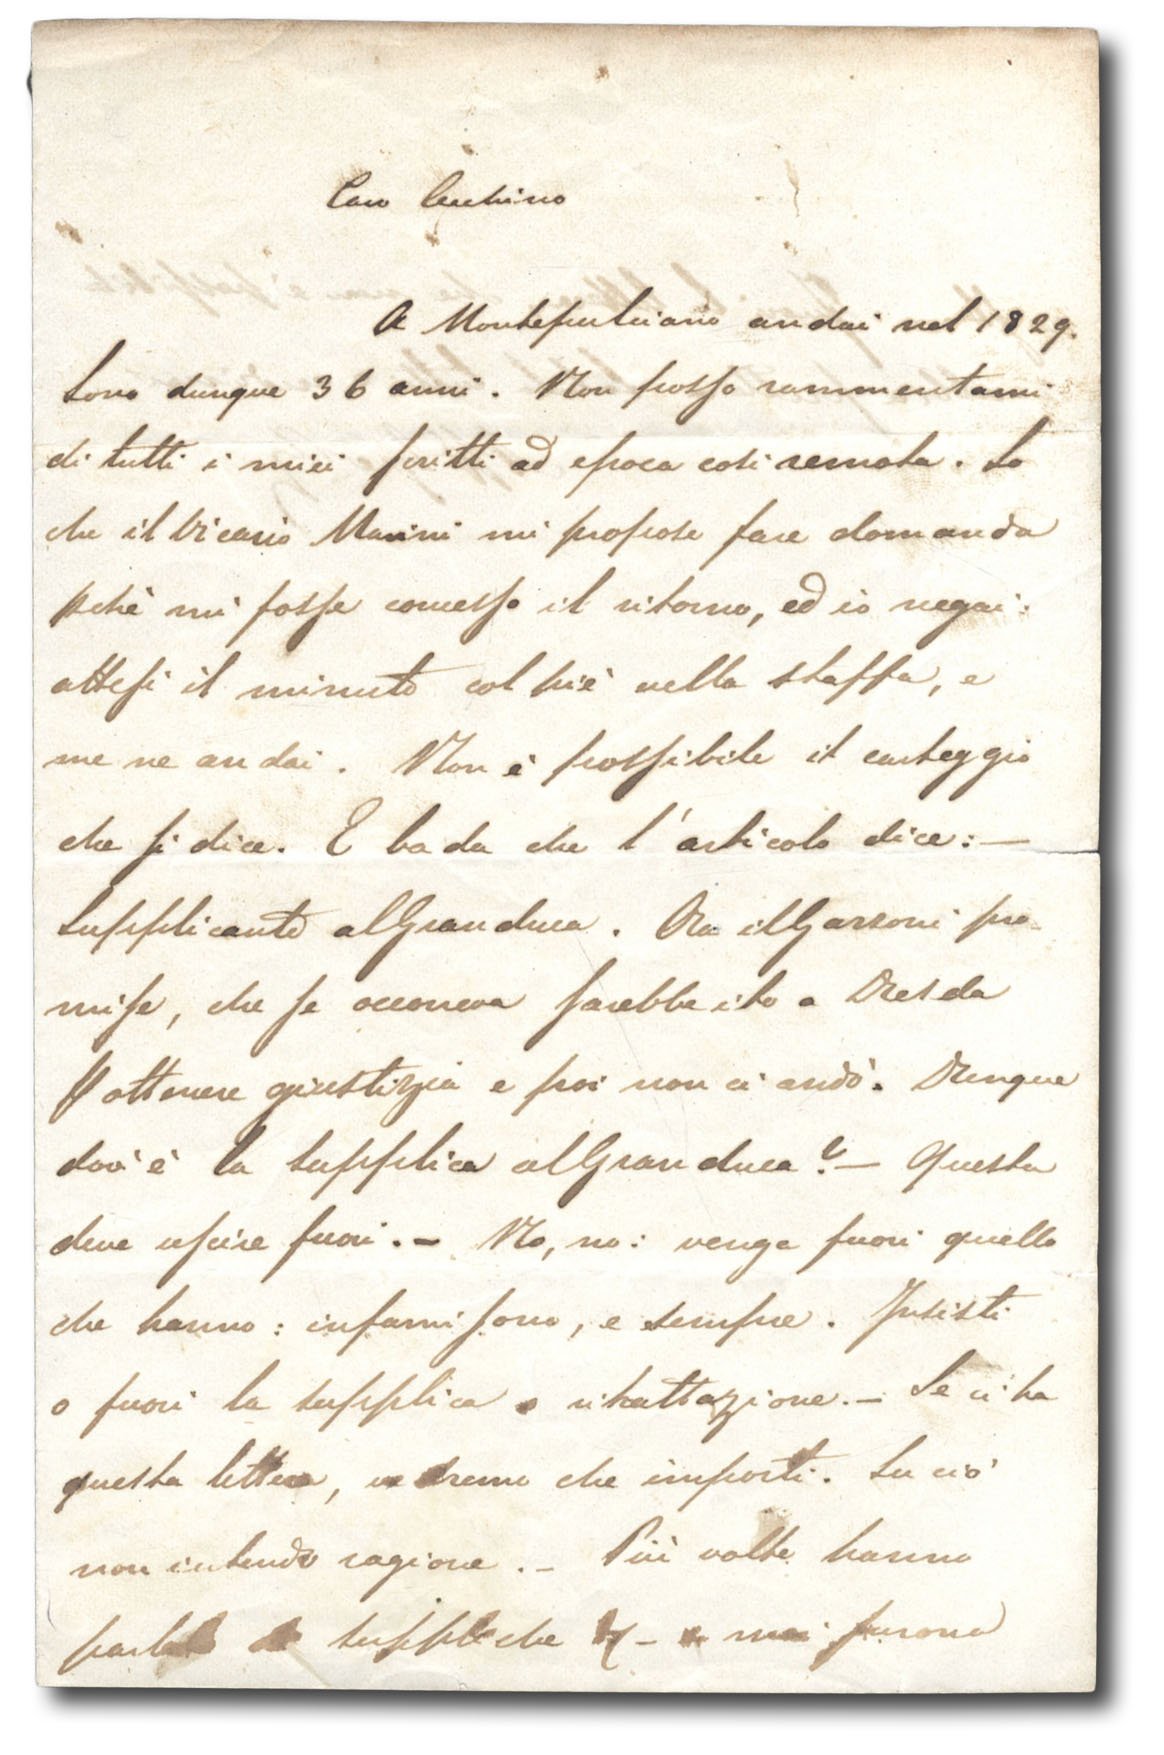 Caro Cecchino
A Montepulciano andai nel 1829.
Sono dunque 36 anni. Non posso rammentarmi
di tutti i miei scritti ad epoca così remota. So
che il Vicario Marini mi propose fare domanda
pchè mi fosse concesso il ritorno, ed io negai:
attesi il minuto col piè nella staffa, e
me ne andai. Non è possibile il carteggio
che si dice. E bada che l'articolo dice: —
Supplicante al Granduca. Ora il Garzoni pro
mise, che se occorreva sarebbe ito a Dresda
p ottenere giustizia e poi non ci andò. Dunque
dov'è la supplica al Granduca? — Questa
deve uscire fuori. — No, no: venga fuori quello
che hanno: infami sono, e sempre. Insisti
o fuori la supplica o ritrattazione. — Se ci ha
questa lettera, vedremo che importi. Su ciò
non intendo ragione. — Più volte hanno
suppliche — e mai furono